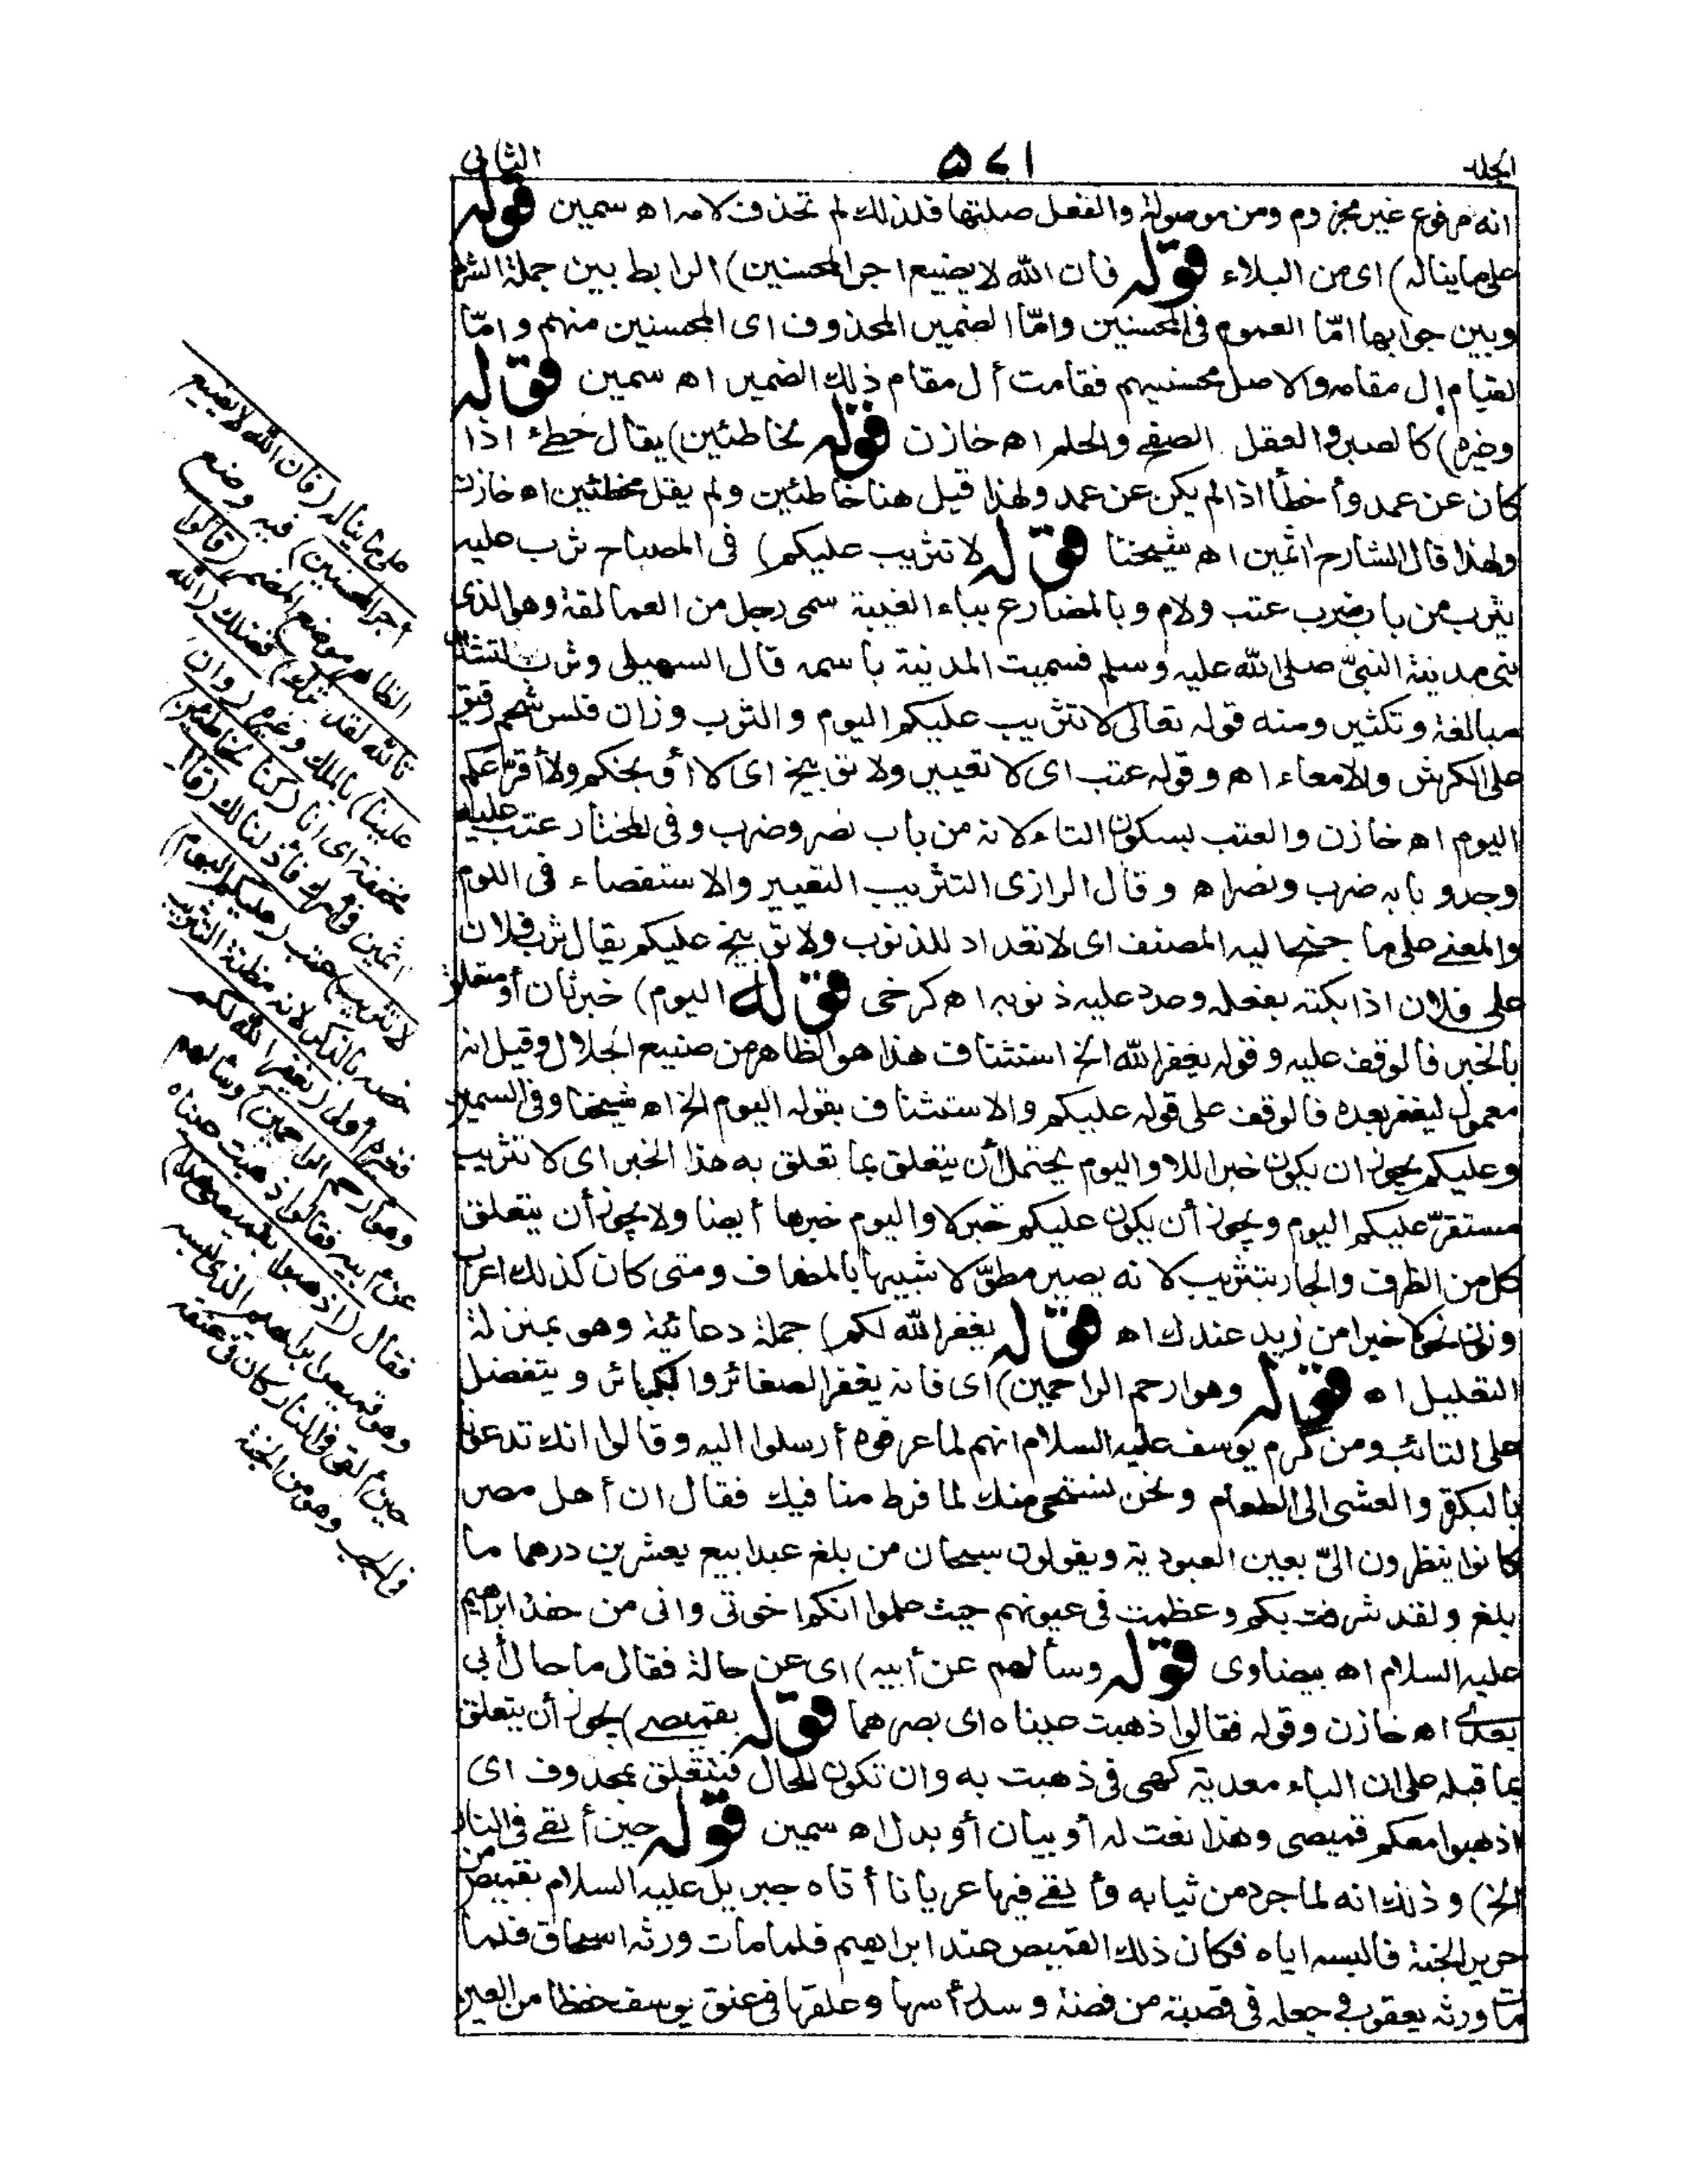 المجلد
٥٧١
الثاني
انه مرفوع غير مجزوم ومن موصولة والفعل صلتها فلذلك لم تحذف لامه اه سمين قوله
على ما يناله) اى من البلاء قوله فان الله لا يضيع اجر المحسنين) الرابط بين جملة الشرط
وبين جوابها امّا العموم فى المحسنين وامّا الضمير المحذوف اى المحسنين منهم وامّا
لقيام ال مقامه والاصل محسنيهم فقامت أل مقام ذلك الضمير اه سمين قوله
وغيره) كالصبر والعقل الصفح والحلم اه خازن قوله لخاطئين) يقال خطئ اذا
كان عن عمد وأخطأ اذا لم يكن عن عمد ولهذا قيل هنا خاطئين ولم يقل مخطئين اه خازن
ولهذا قال الشارح اثمين اه شيخنا قوله لا تثريب عليكم) فى المصباح ثرب عليه
يثرب من باب ضرب عتب ولام وبالمضارع بياء الغيبة سمى رجل من العمالقة وهو الذى
بنى مدينة النبىّ صلى الله عليه وسلم فسميت المدينة باسمه قال السهيلى وثرب بالتشديد
مبالغة وتكثير ومنه قوله تعالى لا تثريب عليكم اليوم والثرب وزان فلس شحم رقيق
على الكرش والامعاء اه وقوله عتب اى لا تعيير ولا توبيخ اى لا أوبخكم ولا أقرّعكم
اليوم اه خازن والعتب بسكون التاء لانه من باب نصر وضرب وفى المختار عتب عليه
وجد وبابه ضرب ونصر اه وقال الرازى التثريب التعيير والاستقصاء فى اللوم
والمعنى على ما جنح اليه المصنف اى لا تعداد للذنوب ولا توبيخ عليكم يقال ثرب فلان
على فلان اذا بكته بفعله وعدد عليه ذنوبه اه كرخى قوله اليوم) خبر ثان أو متعلق
بالخبر فالوقف عليه وقوله يغفر الله الخ استئناف هذا هو الظاهر من صنيع الجلال وقيل انه
معمول ليغفر بعده فالوقف على قوله عليكم والاستئناف بقوله اليوم الخ اه شيخنا وفى السمين
وعليكم يجوز ان يكون خبرا للا واليوم يحتمل أن يتعلق بما تعلق به هذا الخبر اى لا تثريب
مستقرّ عليكم اليوم ويجوز أن يكون عليكم خبر لا واليوم خبرها أيضا ولا يجوز أن يتعلق
كل من الظرف والجار بتثريب لانه يصير مطوّلا شبيها بالمضاف ومتى كان كذلك اعرب
ونون نحو لا خيرا من زيد عندك اه قوله يغفر الله لكم) جملة دعائية وهى بمنزلة
التعليل اه قوله وهو ارحم الراحمين) اى فانه يغفر الصغائر والكبائر ويتفضل
على التائب ومن كرم يوسف عليه السلام انهم لما عرفوه أرسلوا اليه وقالوا انك تدعونا
بالبكرة والعشى الى الطعام ونحن نستحى منك لما فرط منا فيك فقال ان أهل مصر
كانوا ينظرون الىّ بعين العبودية ويقولون سبحان من بلغ عبدا بيع بعشرين درهما ما
بلغ ولقد شرفت بكم وعظمت فى عيونهم حيث علموا انكم اخوتى وانى من حفدة ابراهيم
عليه السلام اه بيضاوى قوله وسألهم عن أبيه) اى عن حاله فقال ما حال أبى
بعدى اه خازن وقوله فقالوا ذهبت عيناه اى بصرهما قوله بقميصى) يجوز أن يتعلق
بما قبله على ان الباء معدية كهى فى ذهبت به وان تكون للحال فتتعلق بمحذوف اى
اذهبوا معكم قميصى وهذا نعت له أو بيان أو بدل اه سمين قوله حين ألقى فى النار
الخ) وذلك انه لما جرد من ثيابه وألقى فيها عريانا أتاه جبريل عليه السلام بقميص من
حرير الجنة فالبسه اياه فكان ذلك القميص عند ابراهيم فلما مات ورثه اسحاق فلما
مات ورثه يعقوب فجعله فى قصبة من فضة وسد رأسها وعلقها فى عنق يوسف حفظا من العين
على ما يناله (فان الله لا يضيع
أجر المحسنين) فيه وضع
الظاهر موضع المضمر (قالوا
تالله لقد آثرك) فضلك (الله
علينا) بالملك وغيره (وان)
مخففة اى انا (كنا لخاطئين)
اثمين فى أمرك فأذلنا لك (قال
لا تثريب) عتب (عليكم اليوم)
خصه بالذكر لانه مظنة التثريب
فغيره أولى (يغفر الله لكم
وهو ارحم الراحمين) وسألهم
عن أبيه فقالوا ذهبت عيناه
فقال (اذهبوا بقميصى هذا)
وهو قميص ابراهيم الذى لبسه
حين ألقى فى النار كان فى عنقه
فى الجب وهو من الجنة